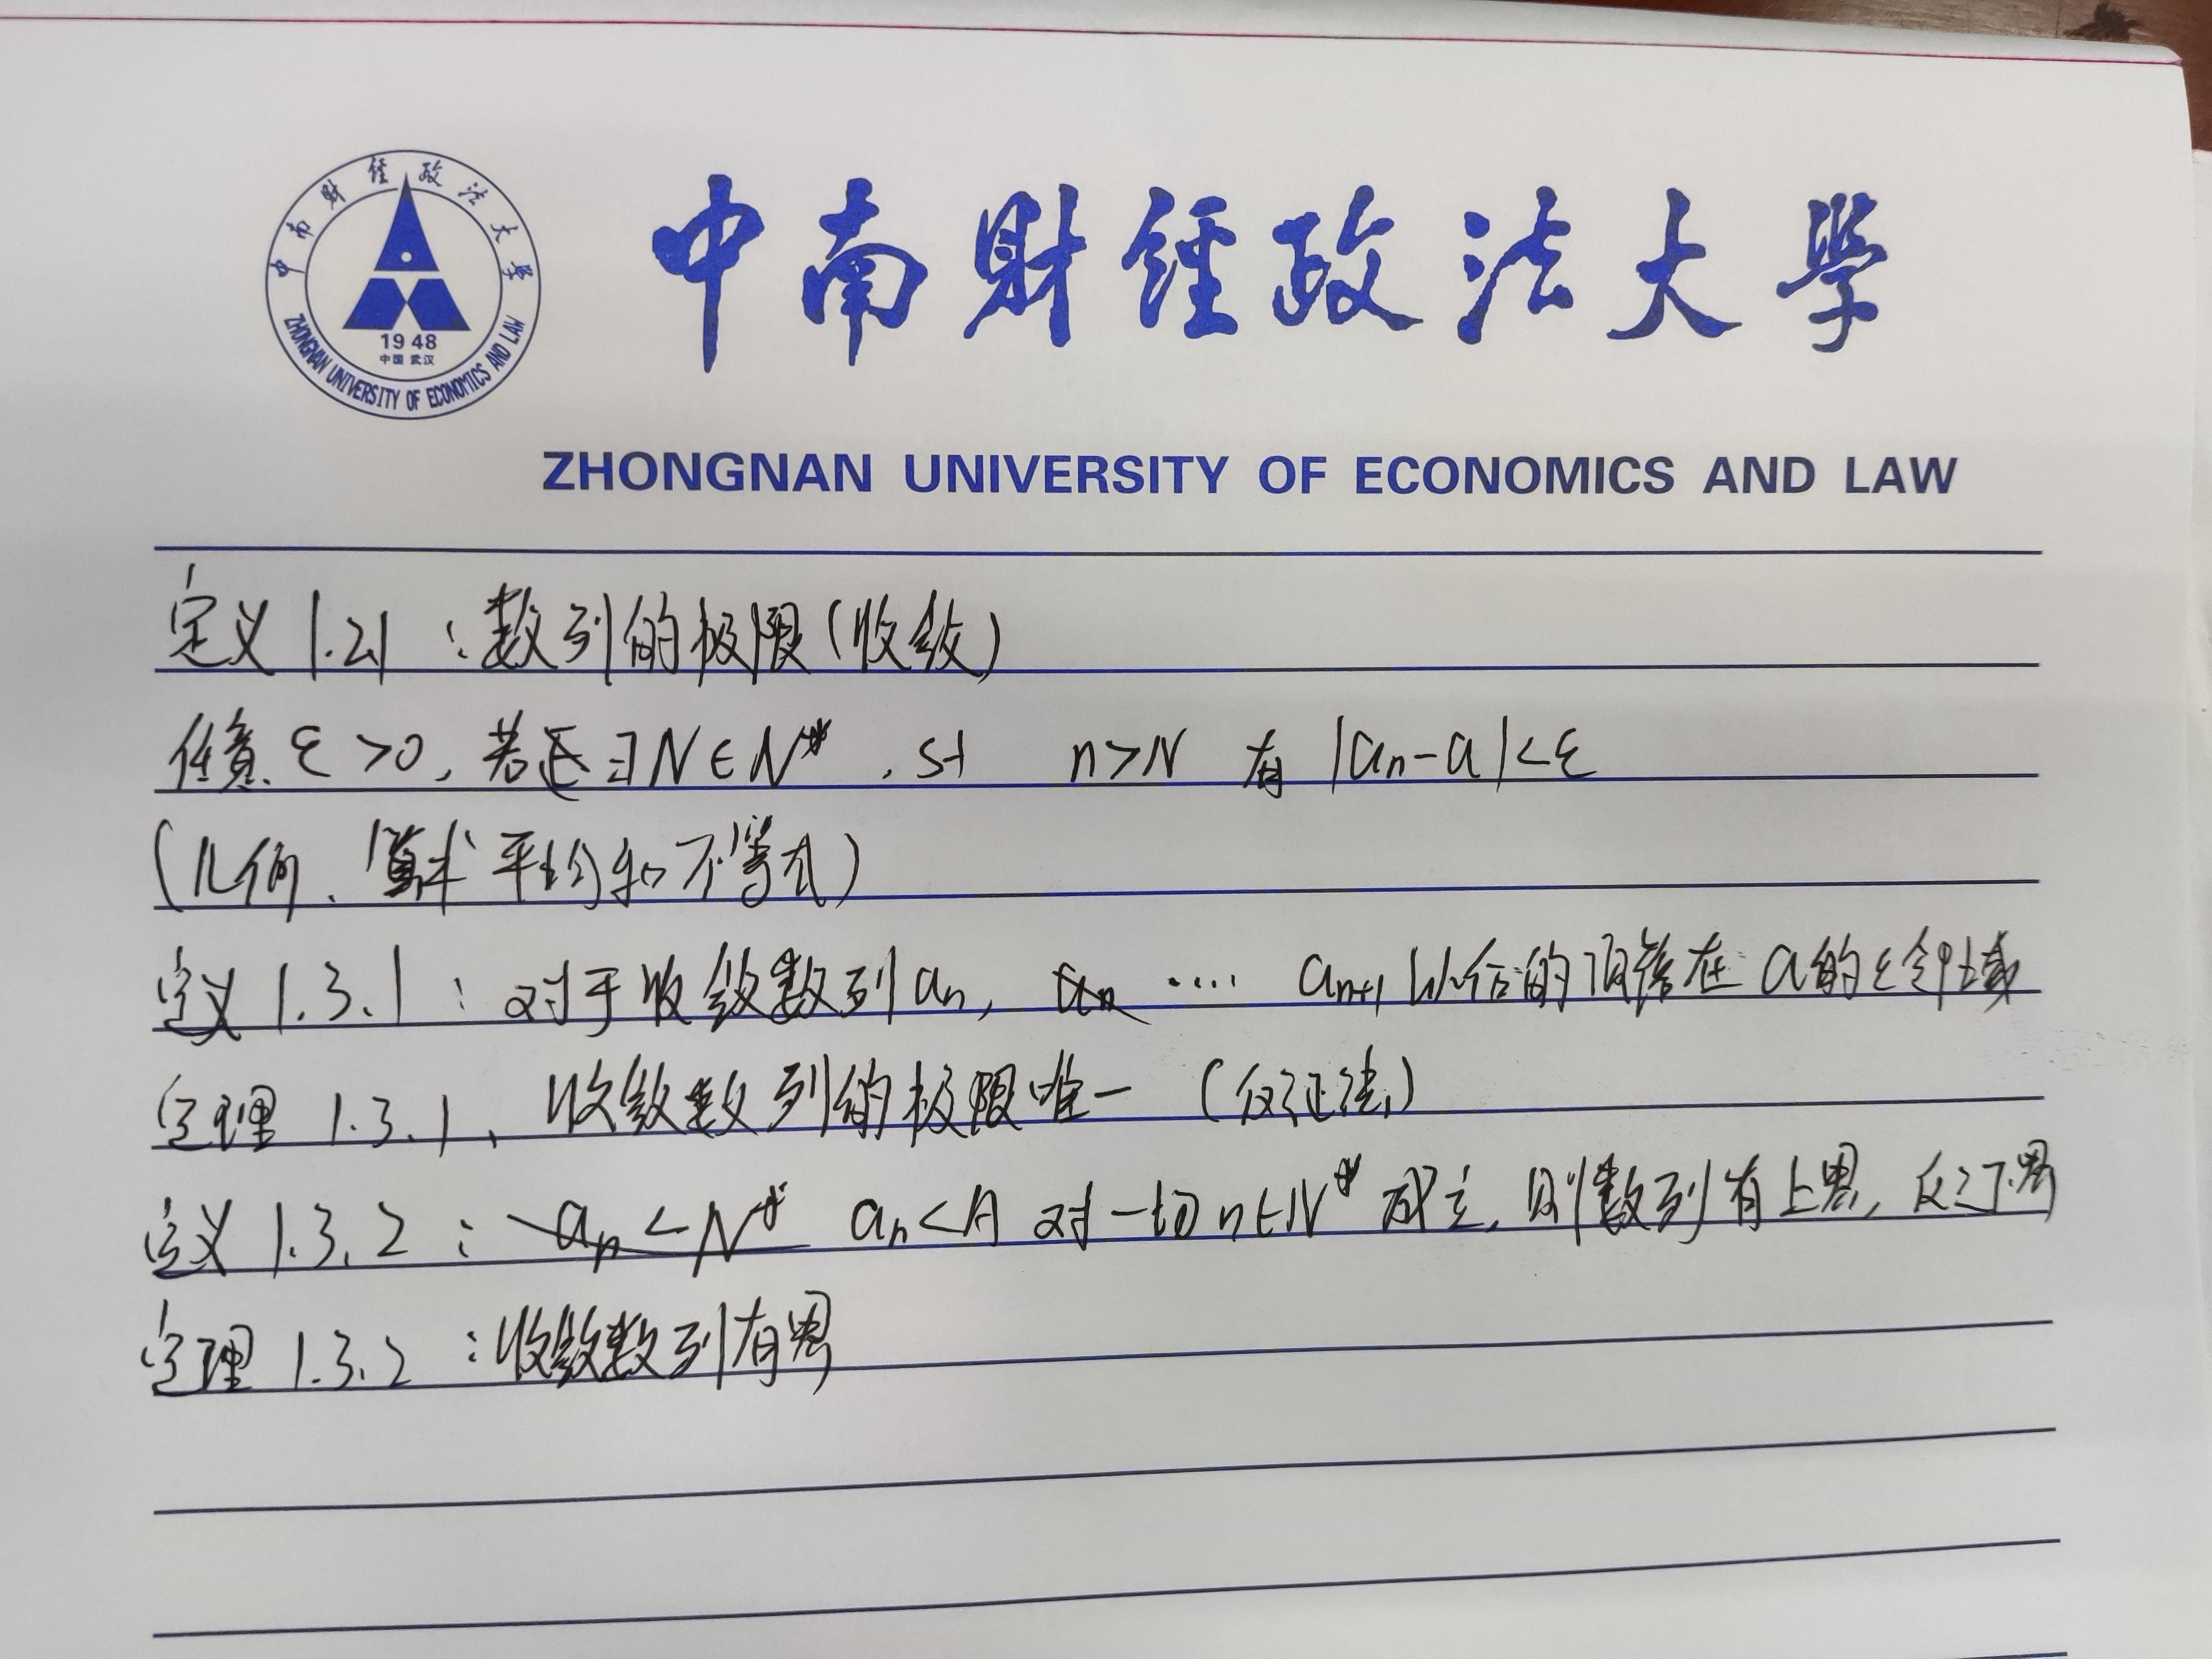 中南财经政法大学
1948
中国 武汉
ZHONGNAN UNIVERSITY OF ECONOMICS AND LAW
中南财经政法大学
ZHONGNAN UNIVERSITY OF ECONOMICS AND LAW
定义 1.21 :数列的极限(收敛)
任意 ε>0, 若 ∃N∈N* , st n>N 有 |an-a|<ε
(几何、算术平均和不等式)
定义 1.3.1 : 对于收敛数列 an, an .... an+1 以后的项落在 a 的 ε邻域
定理 1.3.1、 收敛数列的极限唯一 (反证法)
定义 1.3.2 : an<N* an<A 对一切 n∈N* 成立, 则数列有上界, 反之下界
定理 1.3.2 :收敛数列有界